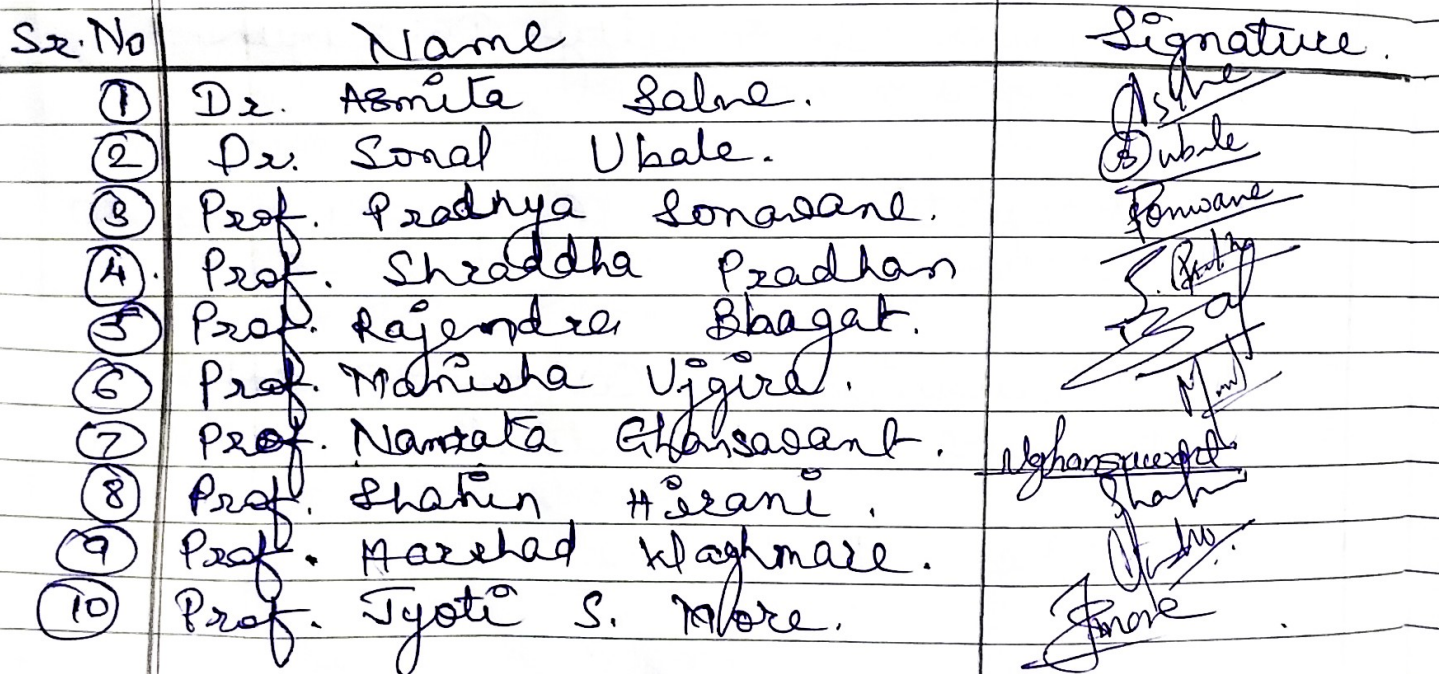 Sr. No Name Signature.
1 Dr. Asmita Salve.
2 Dr. Sonal Ubale. Subale
3 Prof. Pradnya Sonavane. Sonwane
4. Prof. Shraddha Pradhan
5 Prof. Rajendra Bhagat.
6 Prof. Manisha Vjgira.
7 Prof. Namrata Ghansavant. Nghansawant
8 Prof. Shahin Hirani.
9 Prof. Harshad Waghmare.
10 Prof. Jyoti S. More. Jmore